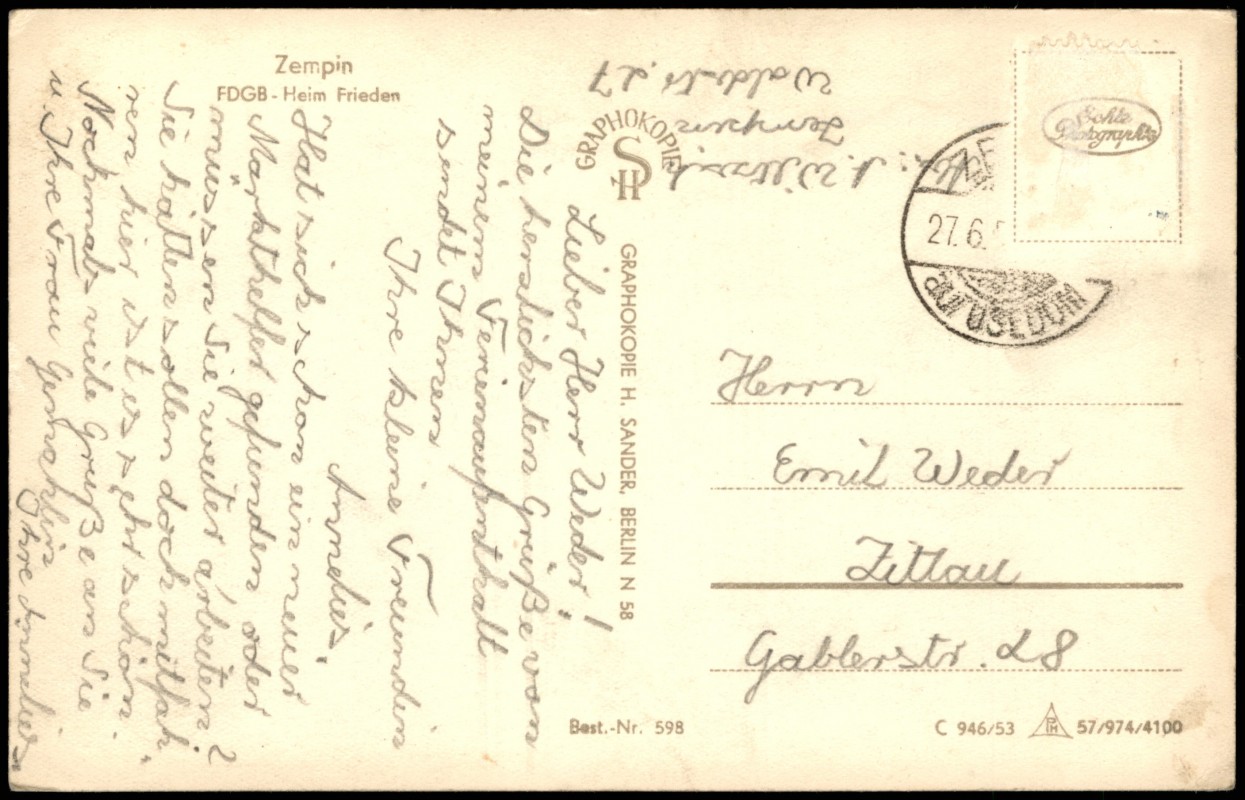 Zempin
FDGB-Heim Frieden
Lieber Herr Weder!
Die herzlichsten Grüße von
meinem Ferienaufenthalt
sendet Ihnen
Ihre kleine Freundin
Annelies.
Hat sich schon ein neuer
Markthelfer gefunden oder
müssen Sie weiter arbeiten?
Sie hätten sollen doch mitfah-
ren hier ist es sehr schön.
Nochmals viele Grüße an Sie
u. Ihre Frau Gemahlin
Ihre Annelies
GRAPHOKOPIE
SH
GRAPHOKOPIE H. SANDER, BERLIN N 58
Zempin
Waldstr. 27
Echte
Photographie
27.6.
auf USEDOM
Herrn
Emil Weder
Zittau
Gablerstr. 28
Best.-Nr. 598
C 946/53
PH
57/974/4100